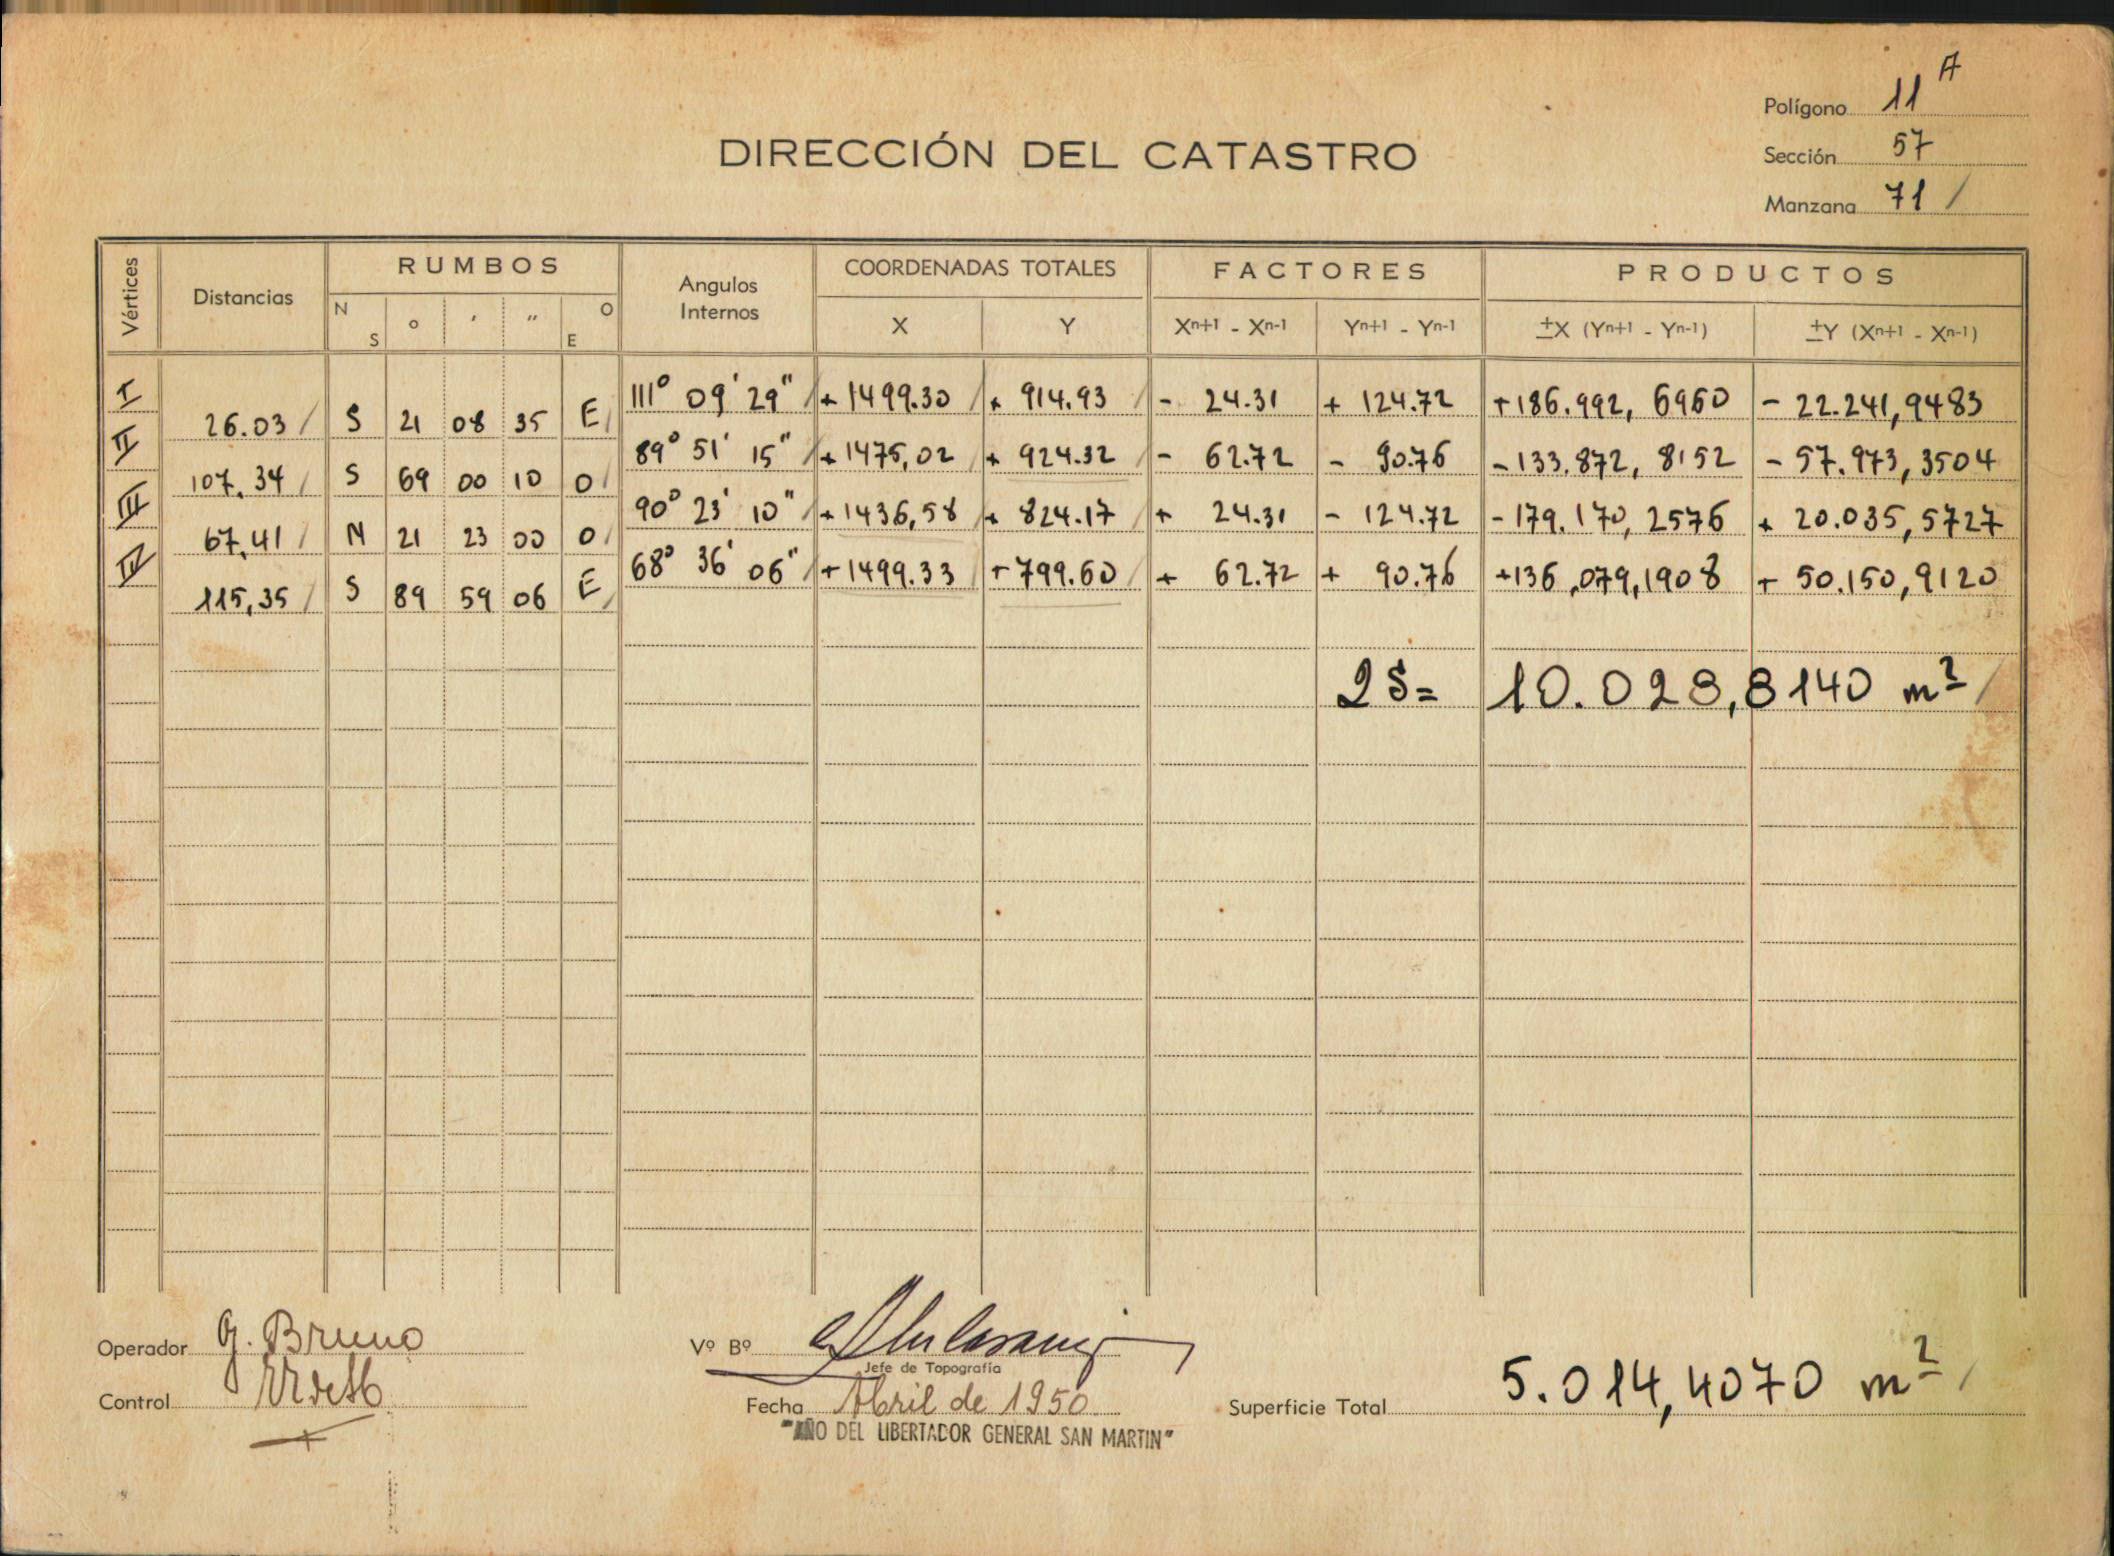 Polígono 11 A
DIRECCIÓN DEL CATASTRO
Sección 57
Manzana 71 /
Vértices
Distancias
RUMBOS
N S ° ' " O E
Angulos Internos
COORDENADAS TOTALES
X Y
FACTORES
Xn+1 - Xn-1 Yn+1 - Yn-1
PRODUCTOS
±X (Yn+1 - Yn-1) ±Y (Xn+1 - Xn-1)
I 111° 09' 29" + 1499.30 + 914.93 - 24.31 + 124.72 +186.992,6960 - 22.241,9483
26.03 S 21 08 35 E
II 89° 51' 15" +1475,02 + 924.32 - 62.72 - 90.76 -133.872,8152 - 57.973,3504
107.34 S 69 00 10 O
III 90° 23' 10" +1436,58 + 824.17 + 24.31 - 124.72 -179.170,2576 + 20.035,5727
67,41 N 21 23 00 O
IV 68° 36' 06" +1499.33 +799.60 + 62.72 + 90.76 +136,079,1908 + 50.150,9120
115,35 S 89 59 06 E
2S= 10.028,8140 m²
Operador G. Bruno
Vº Bº
Jefe de Topografía
Control
Fecha Abril de 1950
"AÑO DEL LIBERTADOR GENERAL SAN MARTIN"
Superficie Total 5.014,4070 m²